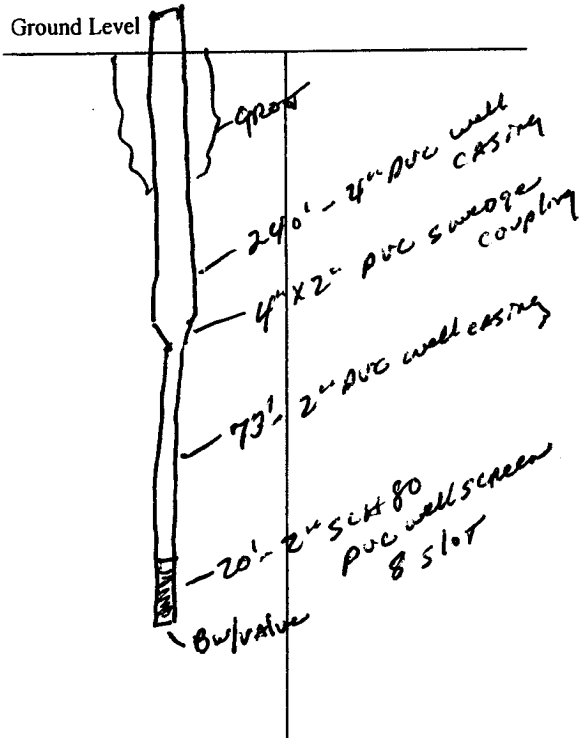 Ground Level
GROUT
240' - 4" PVC well
CASING
4" X 2" PVC swedge
coupling
73' - 2" PVC well casing
20' - 2" SCH 80
PVC well screen
8 slot
BW/valve